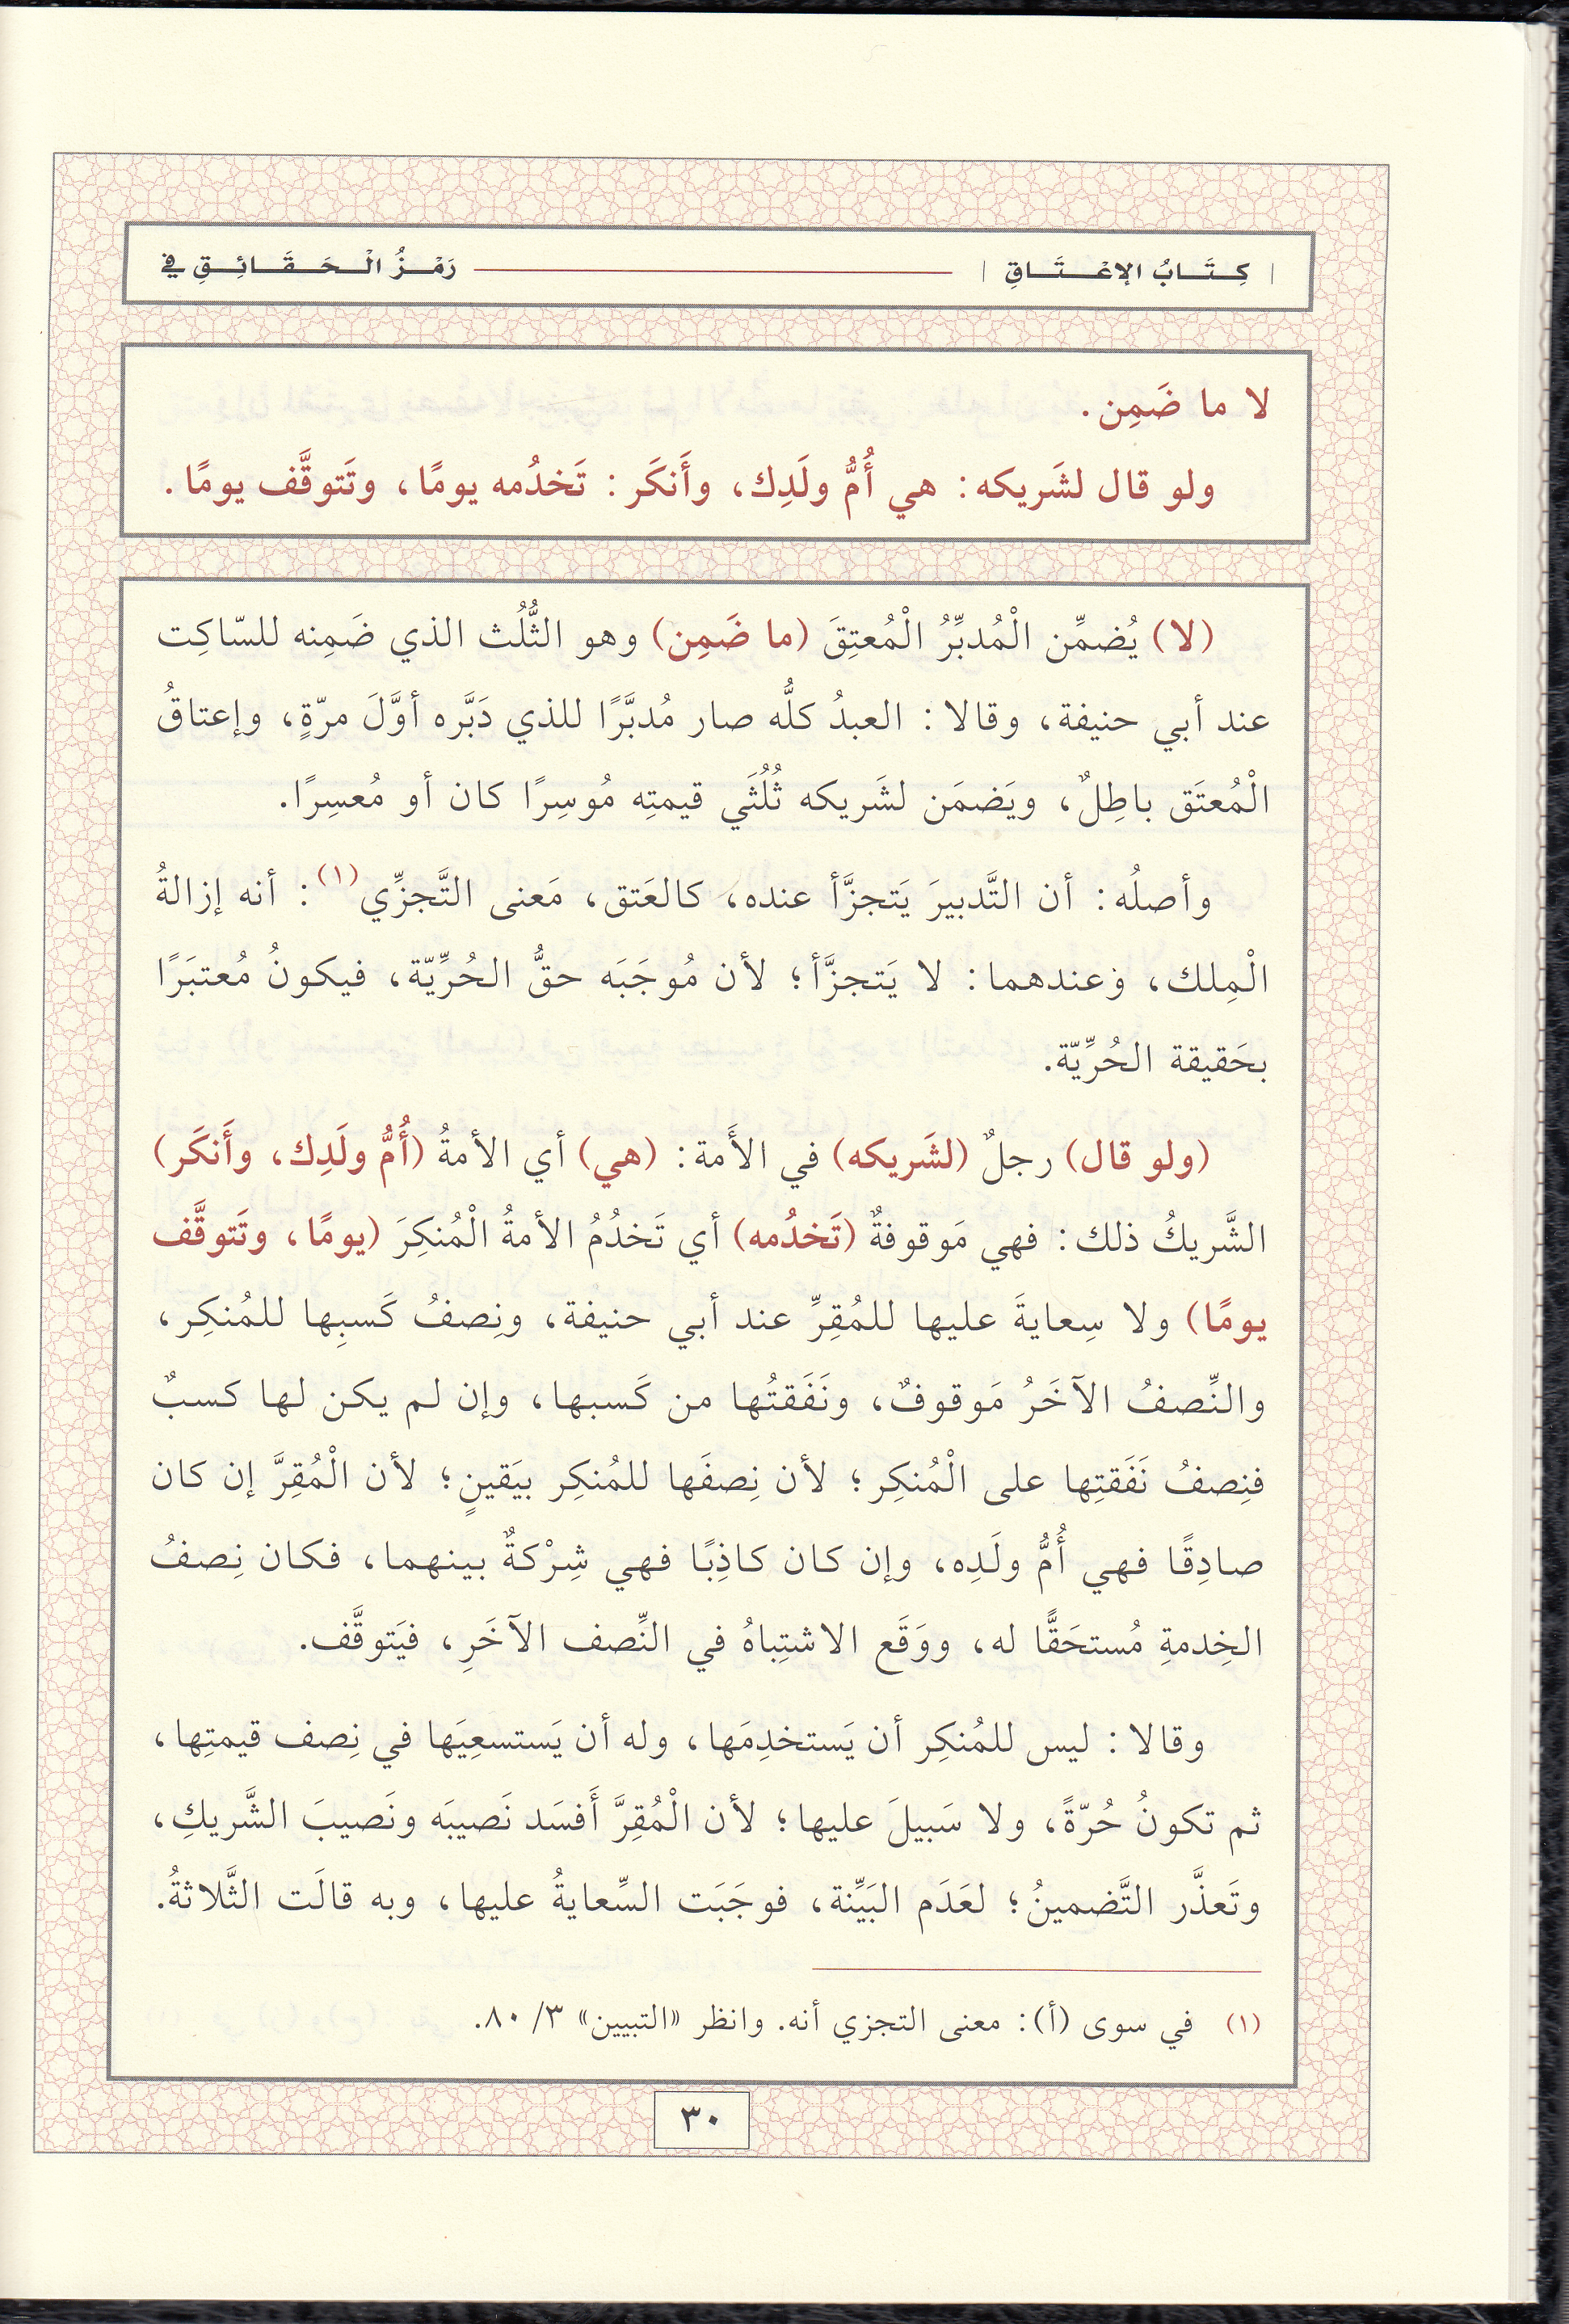 | كِتَابُ الإعْتَاقِ | رَمْزُ الْحَقَائِقِ في
لا ما ضَمِن.
ولو قال لشَريكه: هي أُمُّ ولَدِك، وأَنكَر: تَخدُمه يومًا، وتَتوقَّف يومًا.
(لا) يُضمِّن الْمُدبِّرُ الْمُعتِقَ (ما ضَمِن) وهو الثُّلُث الذي ضَمِنه للسّاكِت
عند أبي حنيفة، وقالا: العبدُ كلُّه صار مُدبَّرًا للذي دَبَّره أوَّلَ مرّةٍ، وإعتاقُ
الْمُعتَق باطِلٌ، ويَضمَن لشَريكه ثُلُثَي قيمتِه مُوسِرًا كان أو مُعسِرًا.
وأصلُه: أن التَّدبيرَ يَتجزَّأ عنده، كالعَتق، مَعنى التَّجزِّي(١): أنه إزالةُ
الْمِلك، وعندهما: لا يَتجزَّأ؛ لأن مُوجَبَه حقُّ الحُرِّيّة، فيكونُ مُعتبَرًا
بحَقيقة الحُرِّيّة.
(ولو قال) رجلٌ (لشَريكه) في الأَمة: (هي) أي الأمةُ (أُمُّ ولَدِك، وأَنكَر)
الشَّريكُ ذلك: فهي مَوقوفةٌ (تَخدُمه) أي تَخدُمُ الأمةُ الْمُنكِرَ (يومًا، وتَتوقَّف
يومًا) ولا سِعايةَ عليها للمُقِرِّ عند أبي حنيفة، ونِصفُ كَسبِها للمُنكِر،
والنِّصفُ الآخَرُ مَوقوفٌ، ونَفَقتُها من كَسبها، وإن لم يكن لها كسبٌ
فنِصفُ نَفَقتِها على الْمُنكِر؛ لأن نِصفَها للمُنكِر بيَقينٍ؛ لأن الْمُقِرَّ إن كان
صادِقًا فهي أُمُّ ولَدِه، وإن كان كاذِبًا فهي شِرْكةٌ بينهما، فكان نِصفُ
الخِدمةِ مُستحَقًّا له، ووَقَع الاشتِباهُ في النِّصف الآخَرِ، فيَتوقَّف.
وقالا: ليس للمُنكِر أن يَستخدِمَها، وله أن يَستسعِيَها في نِصف قيمتِها،
ثم تكونُ حُرّةً، ولا سَبيلَ عليها؛ لأن الْمُقِرَّ أَفسَد نَصيبَه ونَصيبَ الشَّريكِ،
وتَعذَّر التَّضمينُ؛ لعَدَم البَيِّنة، فوجَبَت السِّعايةُ عليها، وبه قالَت الثَّلاثةُ.
(١) في سوى (أ): معنى التجزي أنه. وانظر «التبيين» ٣/ ٨٠.
٣٠